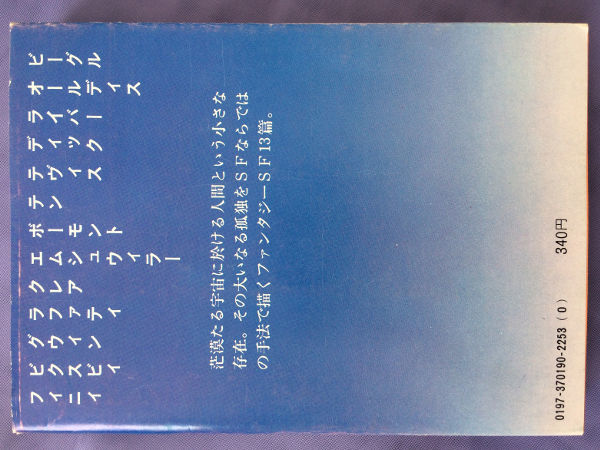 ビーグル
オールディス
ライバー
ディック
テヴィス
テン
ボーモント
エムシュウィラー
クレア
ラファティ
グウィン
ビクスビイ
フィニイ
茫漠たる宇宙に於ける人間という小さな
存在。その大いなる孤独をSFならでは
の手法で描くファンタジーSF13篇。
0197-370190-2253(0) 340円